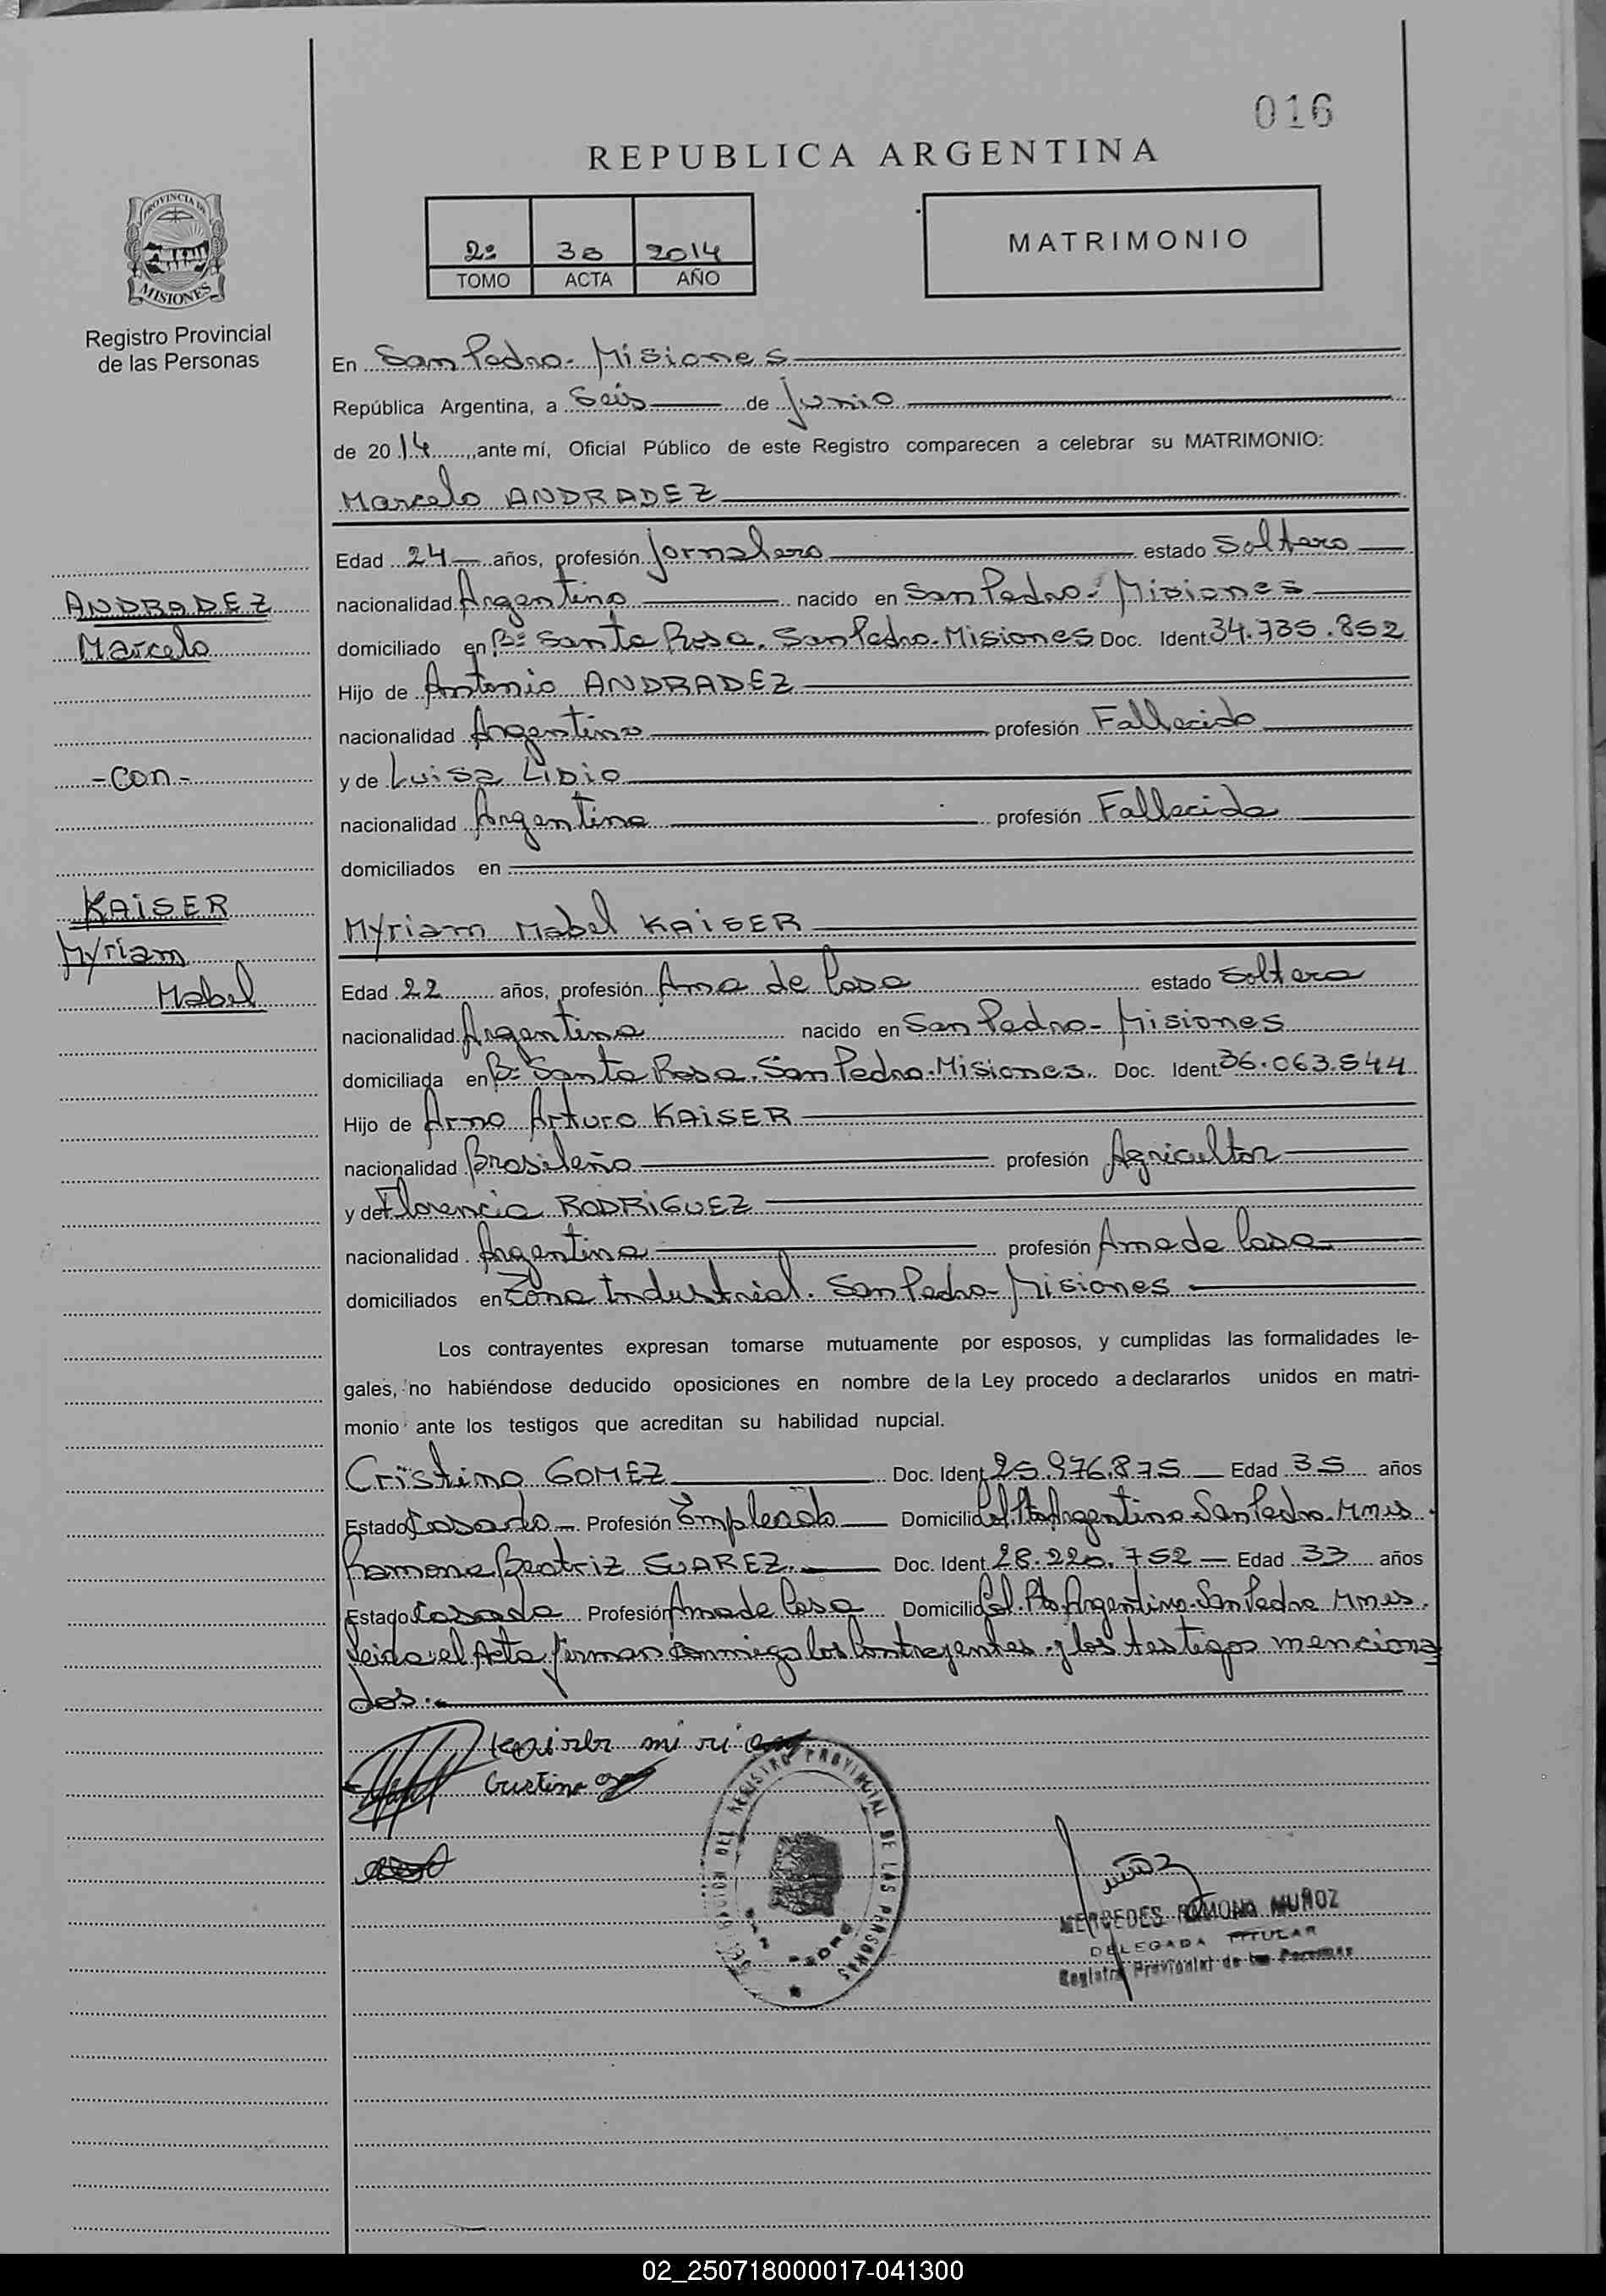 016
REPUBLICA ARGENTINA
PROVINCIA DE
MISIONES
Registro Provincial
de las Personas
2º 38 2014
TOMO ACTA AÑO
MATRIMONIO
En San Pedro - Misiones
República Argentina, a Seis de Junio
de 2014, ante mí, Oficial Público de este Registro comparecen a celebrar su MATRIMONIO:
Marcelo ANDRADEZ
Edad 24 años, profesión Jornalero estado Soltero
ANDRADEZ
Marcelo
nacionalidad Argentino nacido en San Pedro - Misiones
domiciliado en Bº Santa Rosa. San Pedro - Misiones Doc. Ident. 34.735.852
Hijo de Antonio ANDRADEZ
nacionalidad Argentino profesión Fallecido
- Con -
y de Luisa LIDIO
nacionalidad Argentina profesión Fallecida
domiciliados en
KAiSER
Myriam
Mabel
Myriam Mabel KAiSER
Edad 22 años, profesión Ama de Casa estado Soltera
nacionalidad Argentina nacido en San Pedro - Misiones
domiciliada en Bº Santa Rosa. San Pedro - Misiones. Doc. Ident 36.063.544
Hijo de Arno Arturo KAiSER
nacionalidad Brasileño profesión Agricultor
y de Florencia RODRiGUEZ
nacionalidad Argentina profesión Ama de Casa
domiciliados en Zona Industrial. San Pedro - Misiones
Los contrayentes expresan tomarse mutuamente por esposos, y cumplidas las formalidades le-
gales, no habiéndose deducido oposiciones en nombre de la Ley procedo a declararlos unidos en matri-
monio ante los testigos que acreditan su habilidad nupcial.
Cristino GOMEZ Doc. Ident. 25.976.875 Edad 35 años
Estado Casado Profesión Empleado Domicilio Col. Pto Argentino - San Pedro - Mnes.
Ramona Beatriz SUAREZ. Doc. Ident. 28.220.752 Edad 33 años
Estado Casada Profesión Ama de Casa Domicilio Col. Pto Argentino - San Pedro Mnes.
Leida el Acta firman conmigo los Contrayentes y los testigos menciona
dos.
Cristino
REGISTRO PROVINCIAL DE LAS PERSONAS
SAN PEDRO
Muñoz
MERCEDES RAMONA MUÑOZ
DELEGADA TITULAR
Registro Provincial de las Personas
02_250718000017-041300